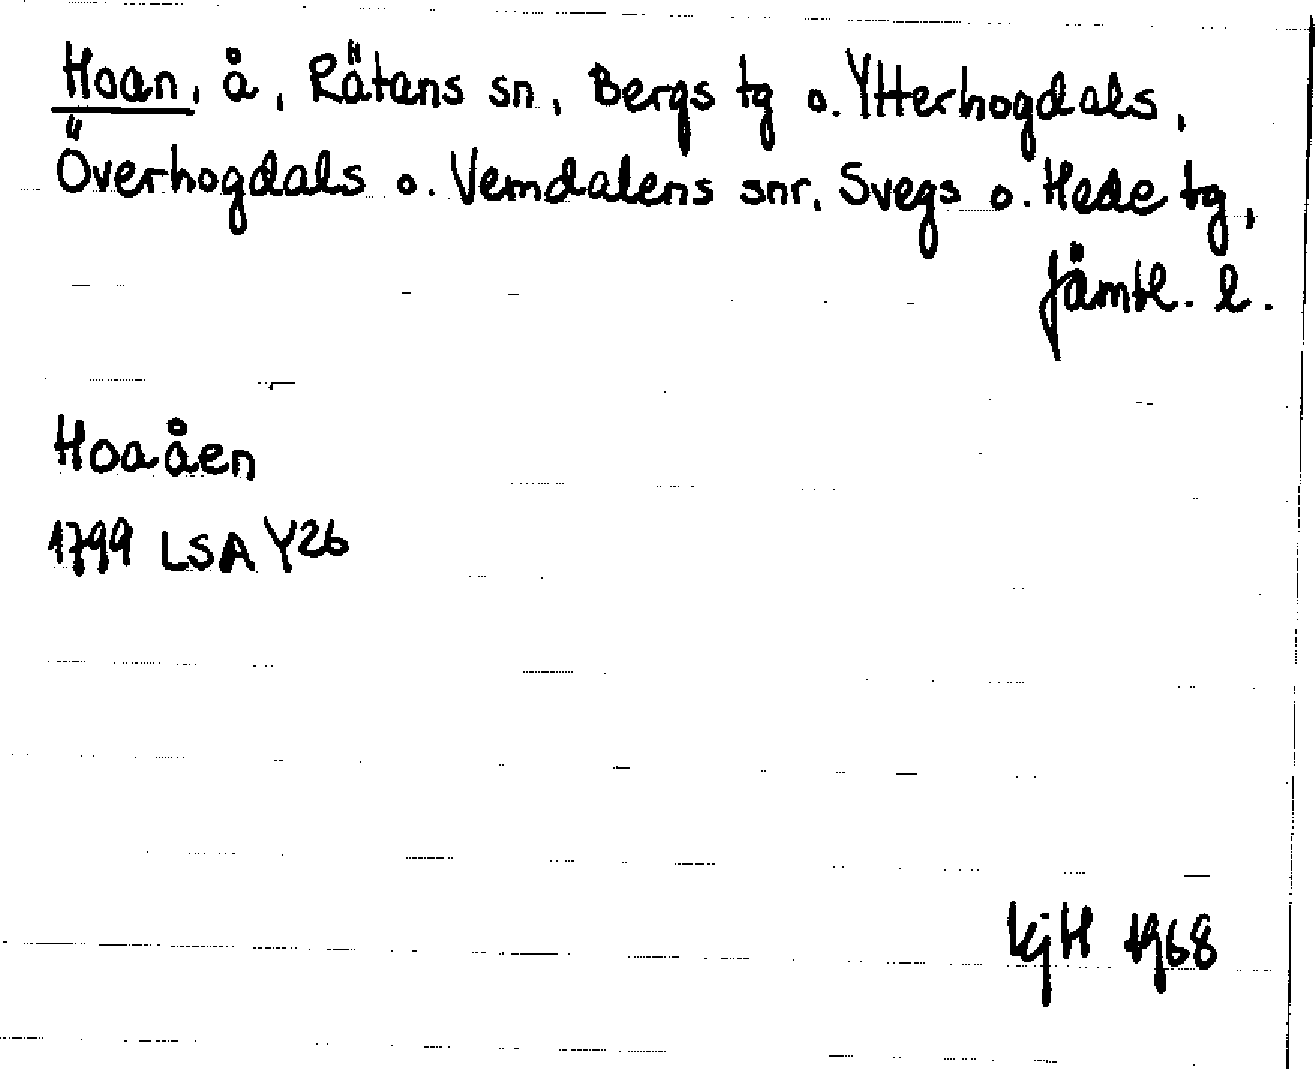 Hoan, å, Rätans sn, Bergs tg o. Ytterhogdals,
Överhogdals o. Vemdalens snr, Svegs o. Hede tg,
Jämtl. l.
Hoaåen
1799 LSA Y26
KjH 1968